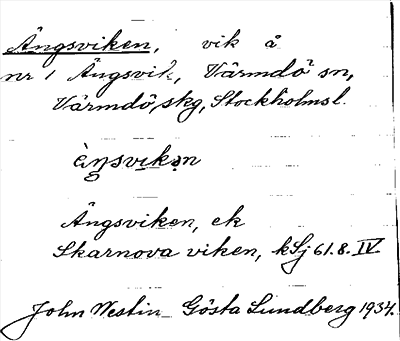 Ängsviken, vik å
nr 1 Ängsvik, Värmdö sn,
Värmdö skg, Stockholmsl.
ä̀ŋsvikən
Ängsviken, ek
Skarnova viken, kSj 61.8.IV.
John Westin Gösta Lundberg 1934.